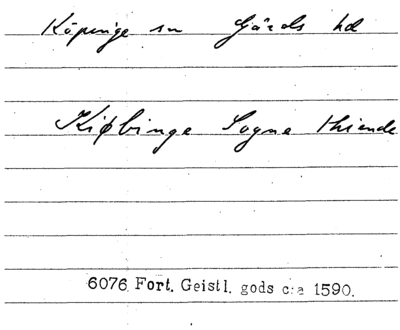 Köpinge sn Gärds hd
Kiøbinge Sogne thiende
6076 Fort. Geistl. gods c:a 1590.